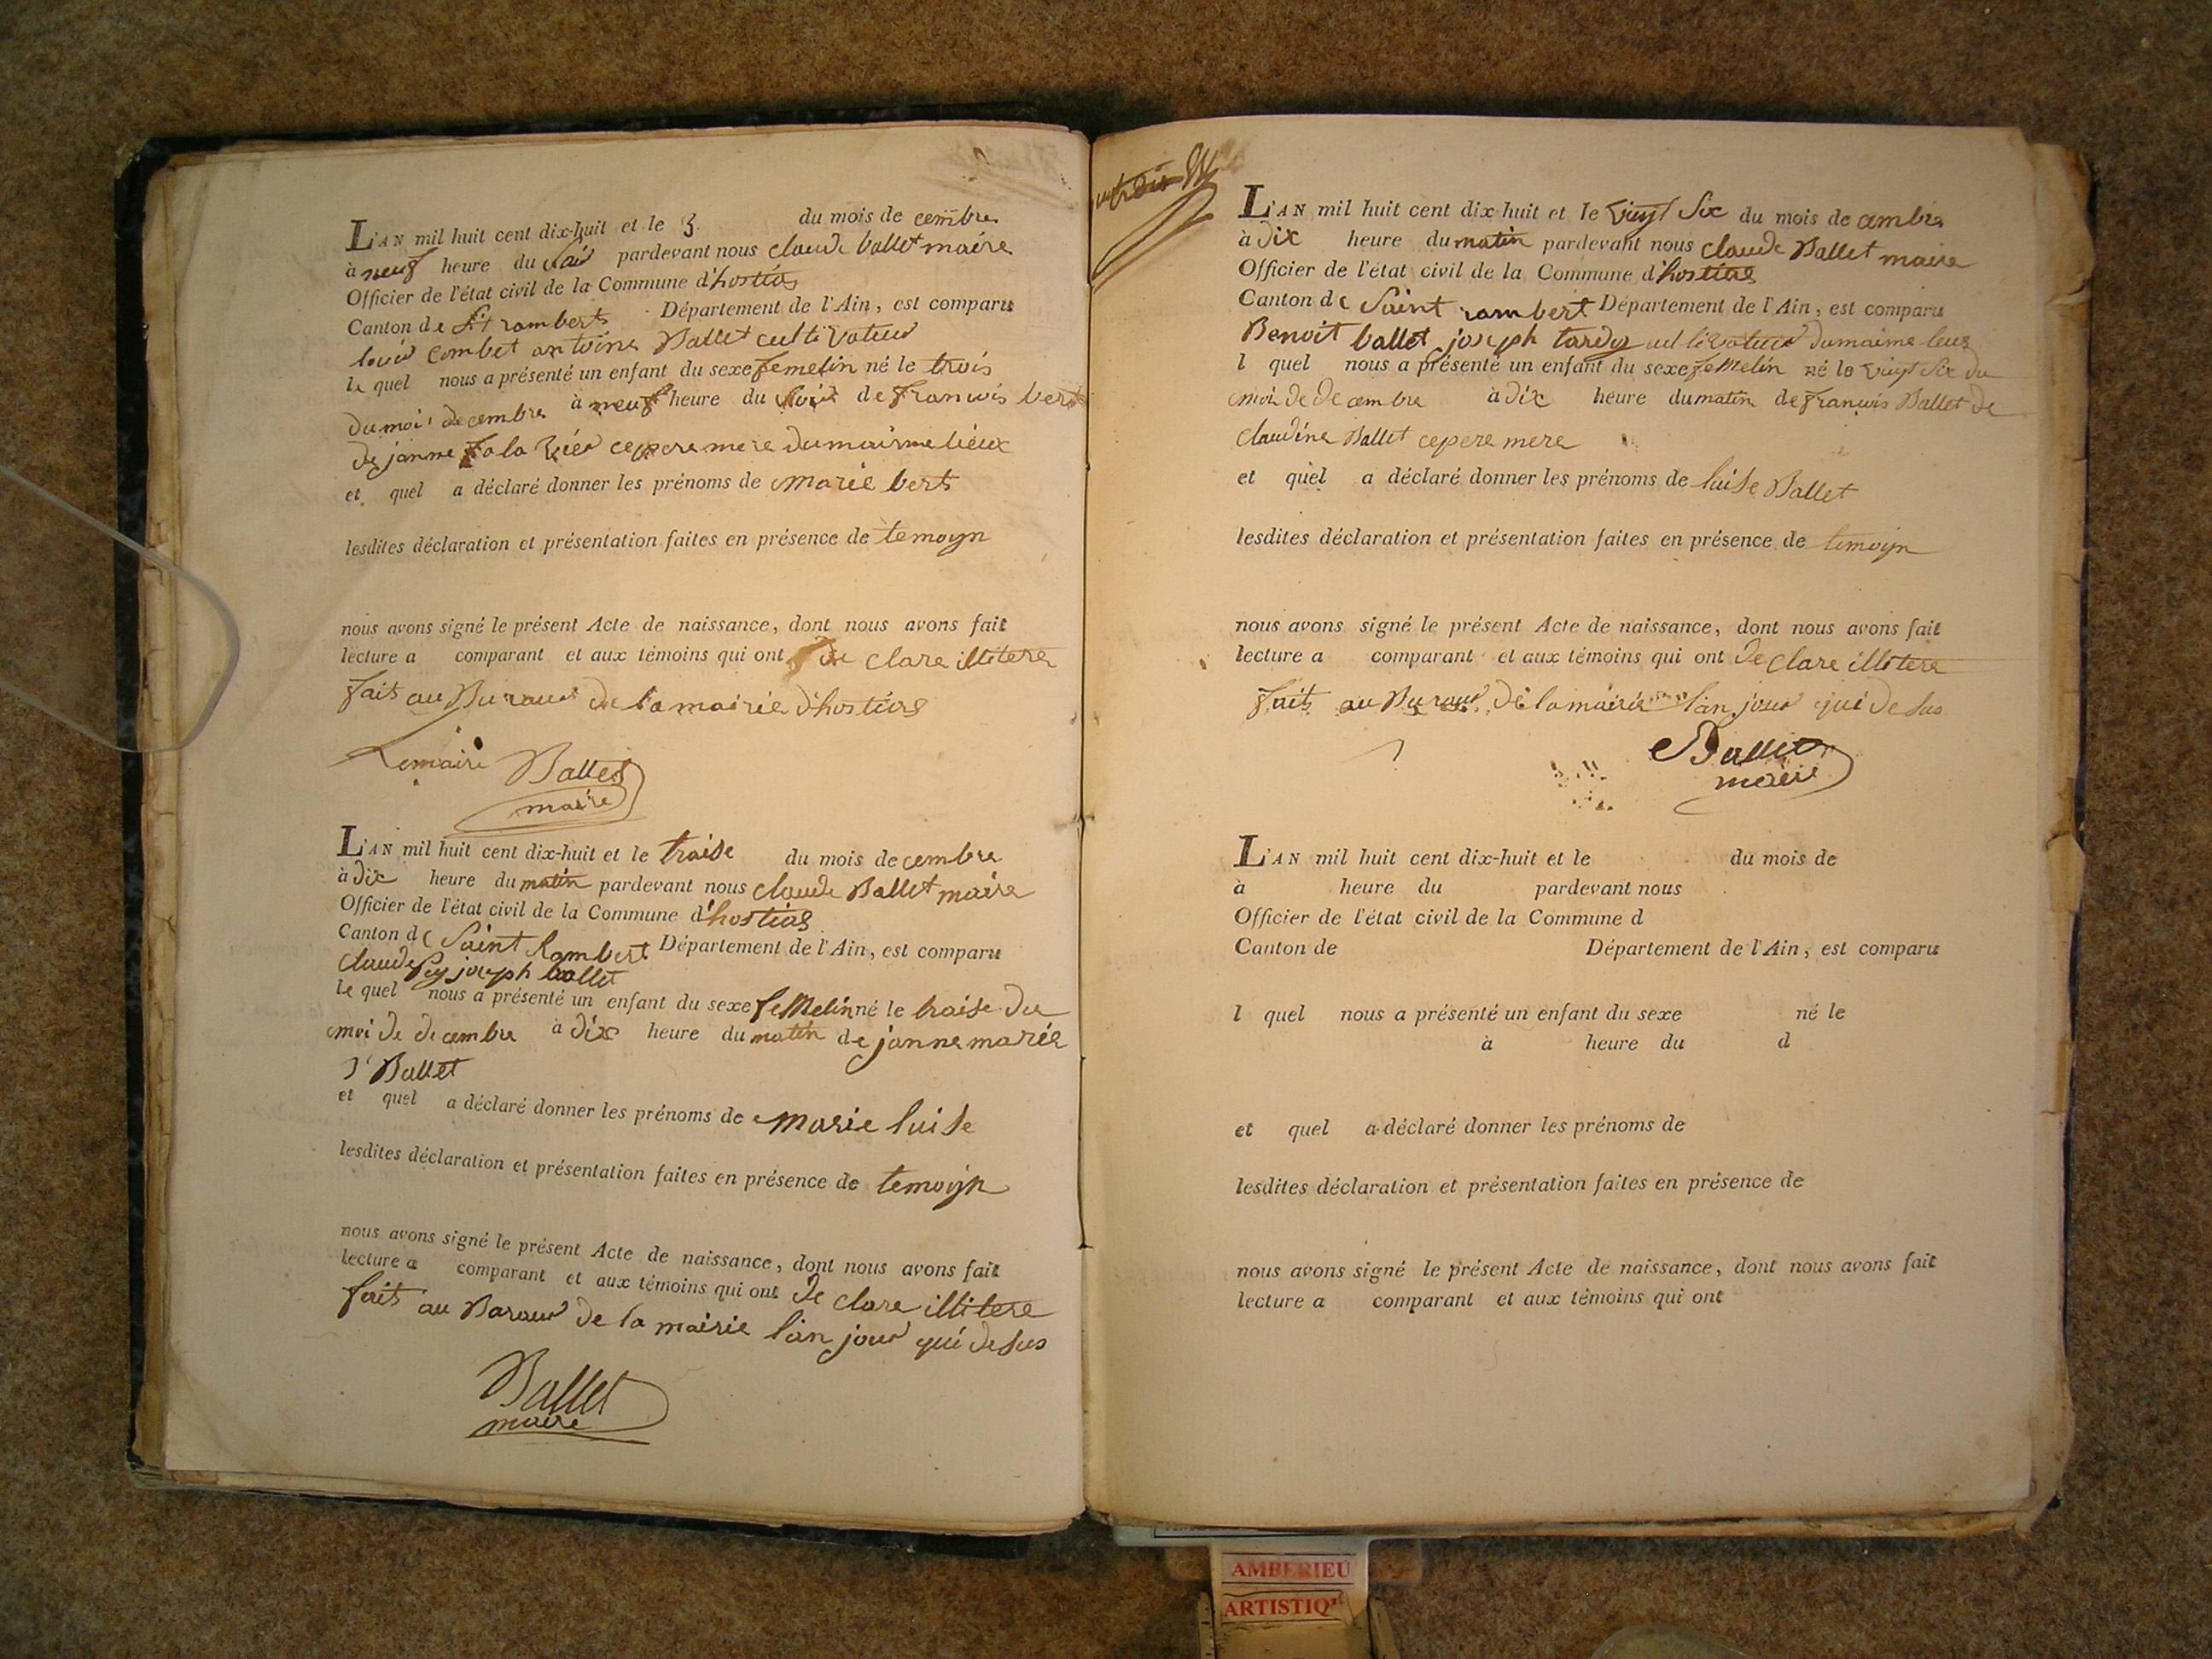 L'AN mil huit cent dix-huit et le 3 du mois de cembre
à neuf heure du soir pardevant nous claude ballet maire
Officier de l'état civil de la Commune d'hostias
Canton de st rambert Département de l'Ain, est comparu
louis combet antoine Ballet cultivateur
le quel nous a présenté un enfant du sexe femelin né le trois
du moi decembre à neuf heure du soir de francois bert
de janne cepere mere dumaime lieux
et quel a déclaré donner les prénoms de marie bert
lesdites déclaration et présentation faites en présence de temoyn
nous avons signé le présent Acte de naissance, dont nous avons fait
lecture a comparant et aux témoins qui ont de clare illitere
fait au Buraux de la mairie d'hostias
Lemaire Ballet
maire
L'AN mil huit cent dix-huit et le traise du mois de cembre
à dix heure du matin pardevant nous claude Ballet maire
Officier de l'état civil de la Commune d'hostias
Canton de Saint Rambert Département de l'Ain, est comparu
claude joseph ballet
le quel nous a présenté un enfant du sexe feMelin né le traise du
moi de decembre à dix heure du matin de janne marie
Ballet
et quel a déclaré donner les prénoms de marie luise
lesdites déclaration et présentation faites en présence de temoyn
nous avons signé le présent Acte de naissance, dont nous avons fait
lecture a comparant et aux témoins qui ont de clare illitere
fait au Baraux de la mairie l'an jour qui desus
Ballet
maire
L'AN mil huit cent dix-huit et le vingt Six du mois de cembre
à dix heure du matin pardevant nous claude Ballet maire
Officier de l'état civil de la Commune d'hostias
Canton de Saint rambert Département de l'Ain, est comparu
Benoit ballet joseph tardy cultivateur dumaime leux
l quel nous a présenté un enfant du sexe feMelin né le vingt Six du
moi de decembre à dix heure du matin de francois Ballet de
claudine Ballet cepere mere
et quel a déclaré donner les prénoms de luise Ballet
lesdites déclaration et présentation faites en présence de temoyn
nous avons signé le présent Acte de naissance, dont nous avons fait
lecture a comparant et aux témoins qui ont de clare illitere
fait au Buraux de la mairie l'an jour qui desus
Ballet
maire
L'AN mil huit cent dix-huit et le du mois de
à heure du pardevant nous
Officier de l'état civil de la Commune d
Canton de Département de l'Ain, est comparu
l quel nous a présenté un enfant du sexe né le
à heure du d
et quel a déclaré donner les prénoms de
lesdites déclaration et présentation faites en présence de
nous avons signé le présent Acte de naissance, dont nous avons fait
lecture a comparant et aux témoins qui ont
AMBERIEU
ARTISTIQ